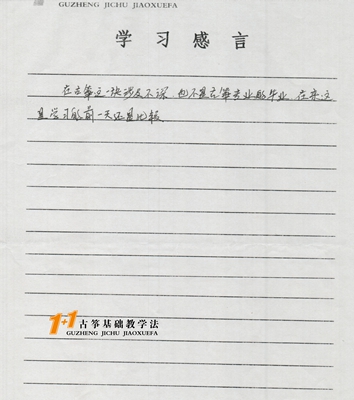 GUZHENG JICHU JIAOXUEFA
学习感言
在古筝这一块涉及不深,也不是古筝专业的毕业,在来这
里学习的前一天还是比较
1+1 古筝基础教学法
GUZHENG JICHU JIAOXUEFA